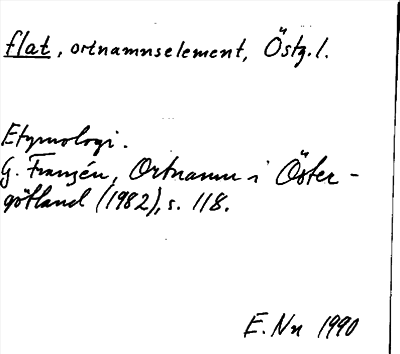 flat, ortnamnselement, Östg.l.
Etymologi.
G. Franzén, Ortnamn i Öster-
götland (1982), s. 118.
E. Nn 1990